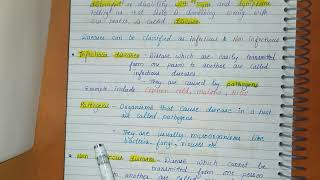 discomfort or disability with symptoms
telling us that there is something wrong with
our health is called disease
Diseases can be classified as Infectious & Non infectious
• Infectious diseases - Disease which are easily transmitted
from one person to another are called
infectious diseases
→ They are caused by pathogens
Example include Common cold, malaria,
Pathogens - Organisms that cause disease in a host
are called pathogens
→ They are usually microorganisms like
bacteria, fungi, viruses etc
• Non diseases - Disease which cannot be
transmitted from one person
another are called